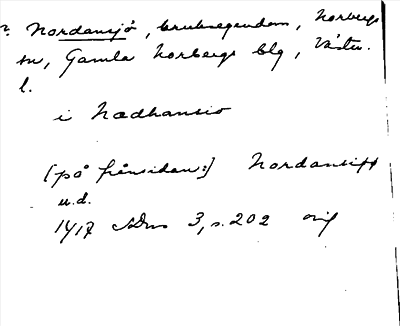 ? Nordansjö, bruksegendom, Norbergs
sn, Gamla Norbergs blg, Västm.
l.
i Nadhansio
[på frånsidan:] Nordansiff
u.d.
1417 3, s. 202 orig